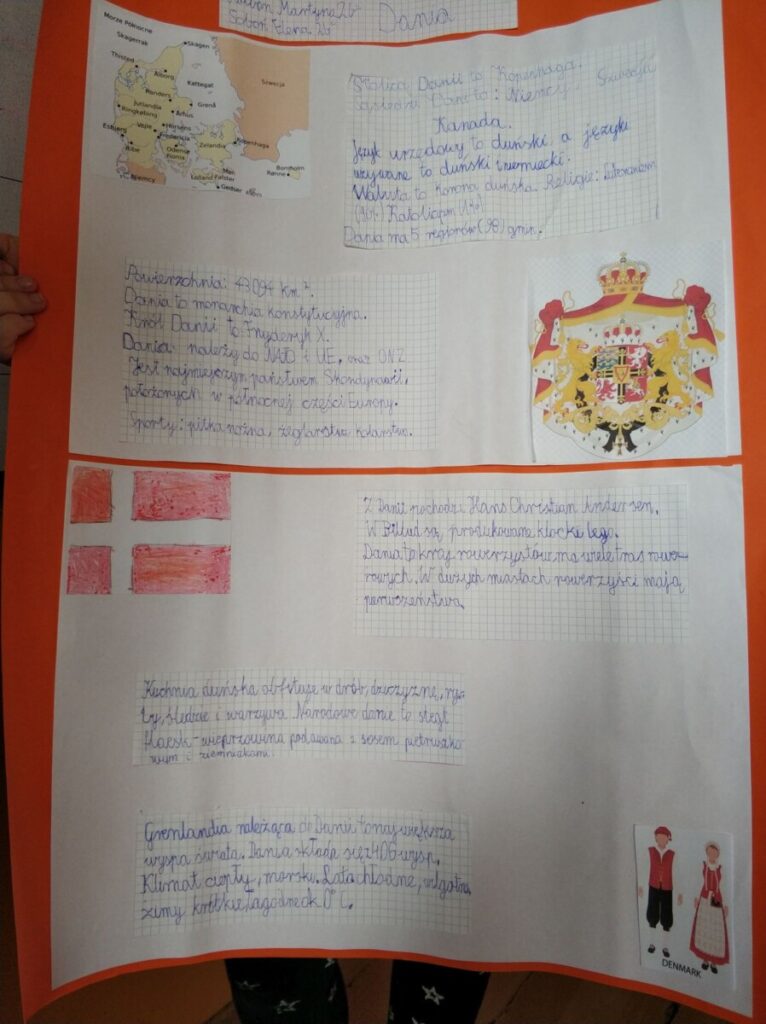 Martyna 2b
Elena 2b
Dania
Morze Północne
Skagerrak
Skagen
Thisted
Ålborg
Kattegat
Szwecja
Randers
Grenå
Jutlandia
Ringkøbing
Århus
Esbjerg
Vejle
Horsens
Fredericia
Kopenhaga
Zelandia
Ribe
Odense
Fionia
Møn
Bornholm
Rønne
Lolland
Falster
Niemcy
Gedser
Stolicą Danii to Kopenhaga.
Sąsiedzi Danii to: Niemcy Szwecja
Kanada.
Język urzędowy to duński, a języki
używane to duński i niemiecki.
Waluta to Korona duńska. Religie: Luteranizm
Dania ma 5 regionów (98) gmin.
Powierzchnia: 43 094 km².
Dania to monarchia konstytucyjna.
Król Danii to Fryderyk X.
Dania należy do NATO i UE, oraz ONZ.
Jest najmniejszym państwem Skandynawii,
położonych w północnej części Europy.
Sporty: piłka nożna, żeglarstwo kolarstwo.
Z Danii pochodzi Hans Christian Andersen.
W Billud są produkowane klocki lego.
Dania to kraj rowerzystów ma wiele tras rowe-
rowych. W dużych miastach rowerzyści mają
pierwszeństwo.
Kuchnia duńska obfituje w drób, dziczyznę, ry-
by, śledzie i warzywa. Narodowe danie to stegt
flaesk - wieprzowina podawana z sosem pietruszko-
wym i ziemniakami.
Grenlandia należąca do Danii to największa
wyspa świata. Dania składa się z 406 wysp.
Klimat ciepły, morski. Lata chłodne, wilgotne,
zimy krótkie, łagodne ok 0°C.
DENMARK